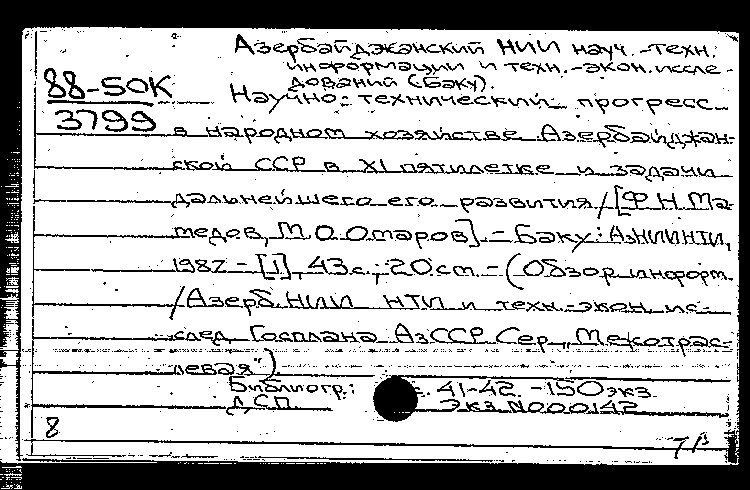 Азербайджанский НИИ науч.-техн.
информации и техн.-экон. иссле-
дований (Баку).
88-50К
3799
Научно-технический прогресс
в народном хозяйстве Азербайджан-
ской ССР в XI пятилетке и задачи
дальнейшего его развития / [Ф.Н. Ма-
медов, М.О. Омаров]. - Баку: АзНИИНТИ,
1987 - [1], 43с.; 20см - (Обзор. информ.
/Азерб. НИИ НТИ и техн.-экон. ис-
след. Госплана АзССР. Сер. „Межотрас-
левая")
Библиогр.: с. 41-42. - 150экз.
Д.С.П. Экз. N000142
8